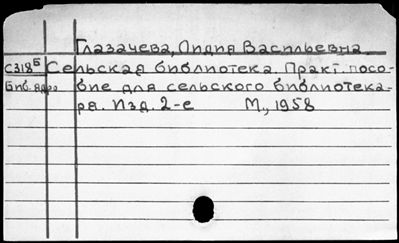 Глазачева, Лидия Васильевна
С318Б Сельская библиотека. Практ. посо-
Биб. ядро бие для сельского библиотека-
ря. Изд. 2-е М., 1958